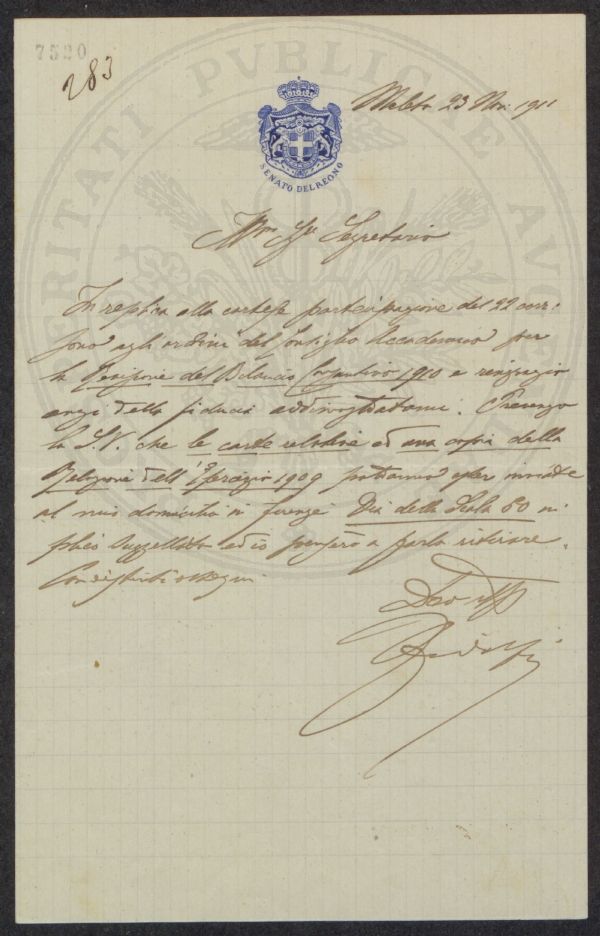 7520
283
PROSPERITATI PVBLICAE AVGENDAE
Meleto 23 Nov. 1911
SENATO DEL REGNO
Segretario
In replica alla cortese partecipazione del 22 corr.
sono agli ordini del Consiglio Accademico per
la Revisione del Bilancio Consuntivo 1910 e ringrazio
anzi della fiducia addimostratami. Prevengo
la S.V. che le carte relative ed una copia della
Relazione dell'Esercizio 1909 potranno esser inviate
al mio domicilio in Firenze Via della Scala 80 in
plico suggellato ed io penserò a farlo ritirare.
Con distinti ossequi
Dev
Ridolfi